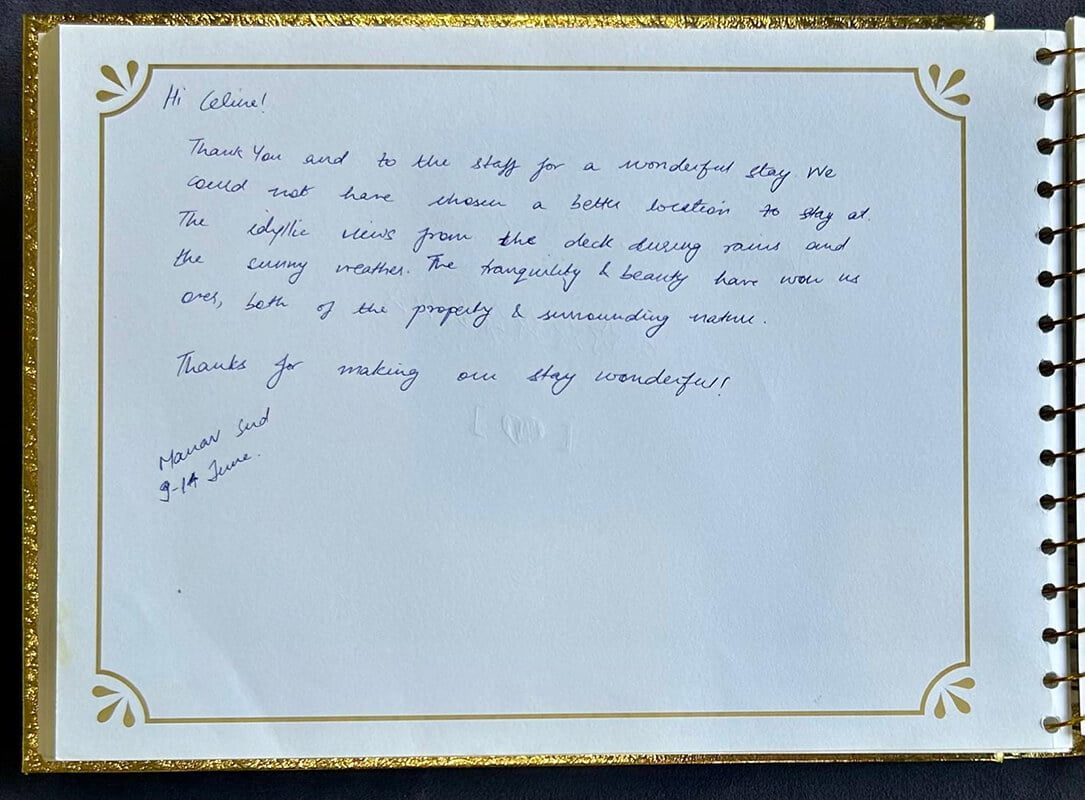 Hi Celine!
Thank You and to the staff for a wonderful stay. We
could not have chosen a better location to stay at.
The idyllic views from the deck during rains and
the sunny weather. The tranquility & beauty have won us
over, both of the property & surrounding nature.
Thanks for making our stay wonderful!!
Manav Sud
9-14 June.